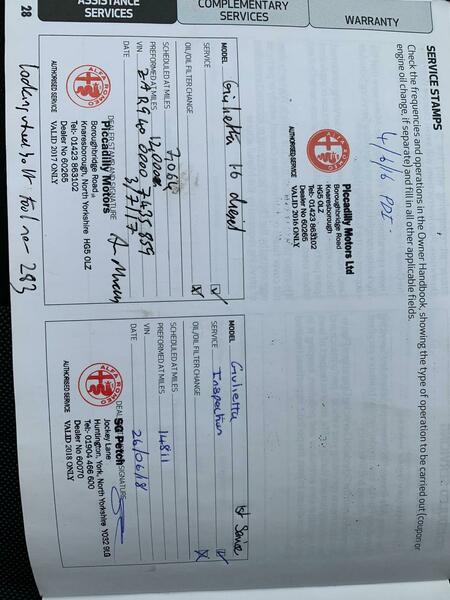 28
ASSISTANCE
SERVICES
COMPLEMENTARY
SERVICES
WARRANTY
SERVICE STAMPS
Check the frequencies and operations in the Owner Handbook, showing the type of operation to be carried out (coupon or
engine oil change, if separate) and fill in all other applicable fields.
4/6/16 PDI
ALFA ROMEO
AUTHORISED SERVICE
Piccadilly Motors Ltd
Boroughbridge Road
Knaresborough
HG5 0LZ
Tel:- 01423 863102
Dealer No 60265
VALID 2016 ONLY
MODEL Giulietta 1.6 diesel
SERVICE
OIL/OIL FILTER CHANGE
SCHEDULED AT MILES 7064
PREFORMED AT MILES 12,000
VIN
DATE 3/7/17
DEALER STAMP AND SIGNATURE
ALFA ROMEO
AUTHORISED SERVICE
Piccadilly Motors
Boroughbridge Road
Knaresborough, North Yorkshire HG5 0LZ
Tel:- 01423 863102
Dealer No 60265
VALID 2017 ONLY
Locking wheel bolt tool no- 283
MODEL Giulietta
SERVICE Inspection 1st Service
OIL/OIL FILTER CHANGE
SCHEDULED AT MILES
PREFORMED AT MILES 14811
VIN
DATE 26/06/18
SIGNATURE
ALFA ROMEO
AUTHORISED SERVICE
SG Petch
Jockey Lane
Huntington, York, North Yorkshire YO32 9LG
Tel:- 01904 466 600
Dealer No 60070
VALID 2018 ONLY